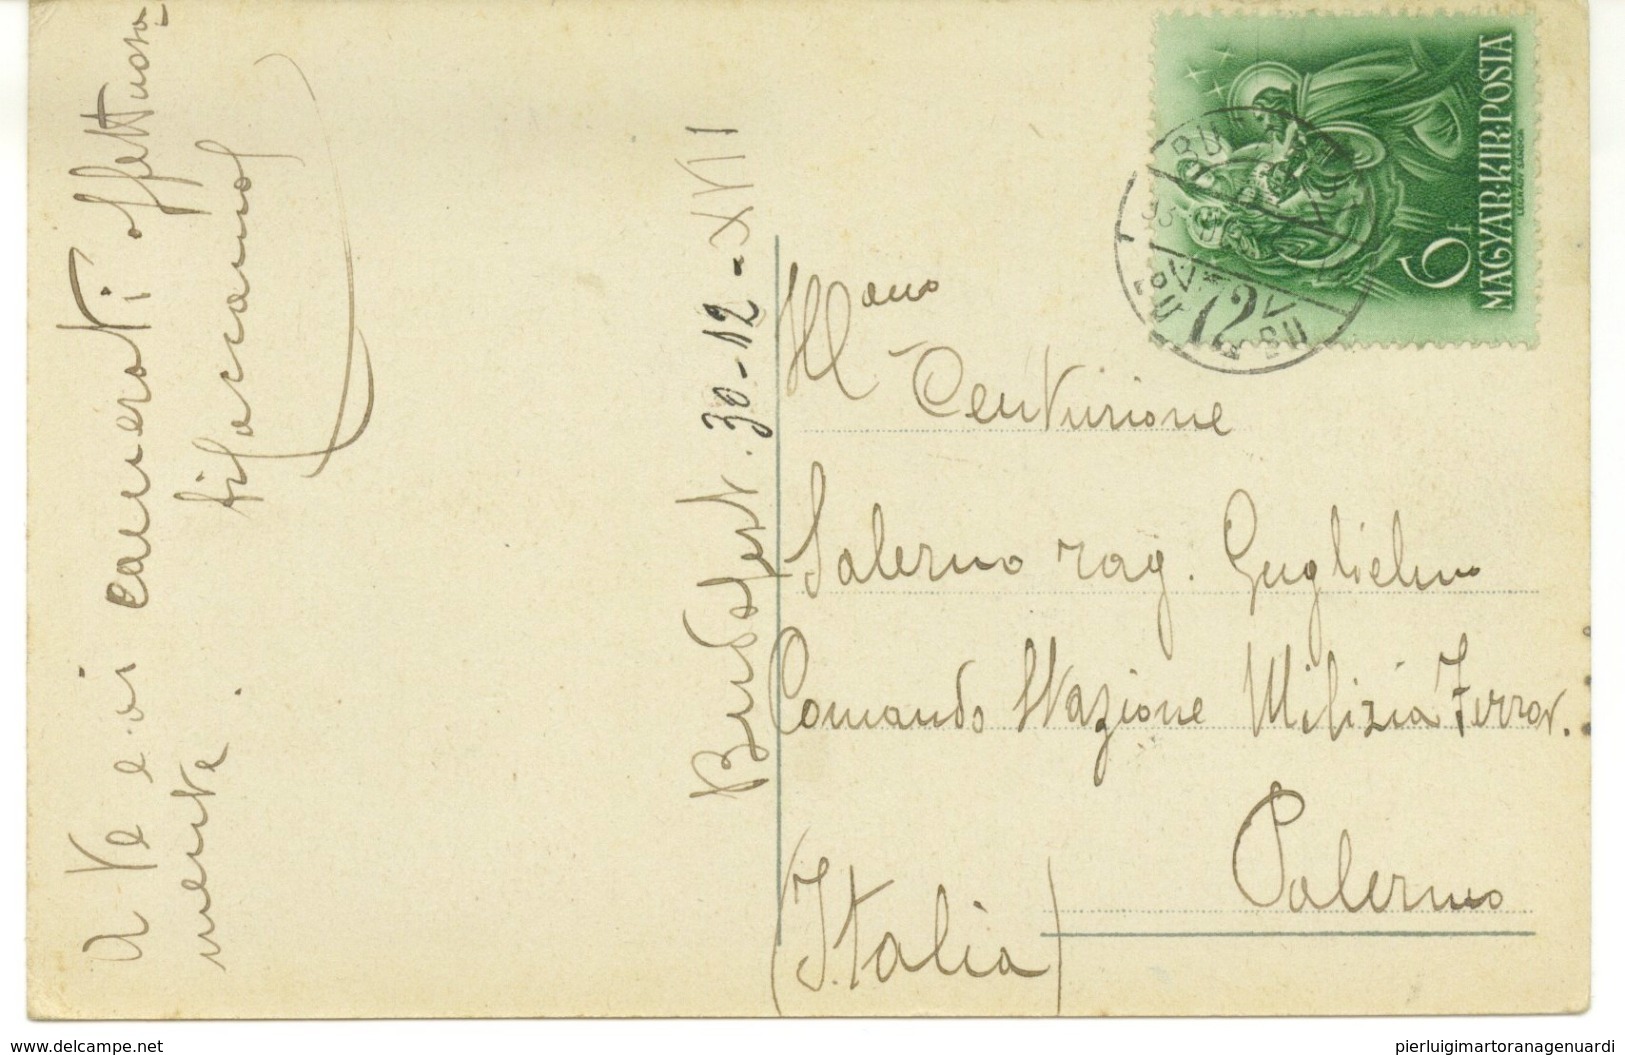 A te e ai camerati affettuosa
mente.
Budapest. 30-12-XVII
Ill.mo
Centurione
Salerno rag. Guglielmo
Comando Stazione Milizia Ferrov.
Palermo
(Italia)
6 F
MAGYAR·KIR·POSTA
BU
72
www.delcampe.net
pierluigimartoranagenuardi